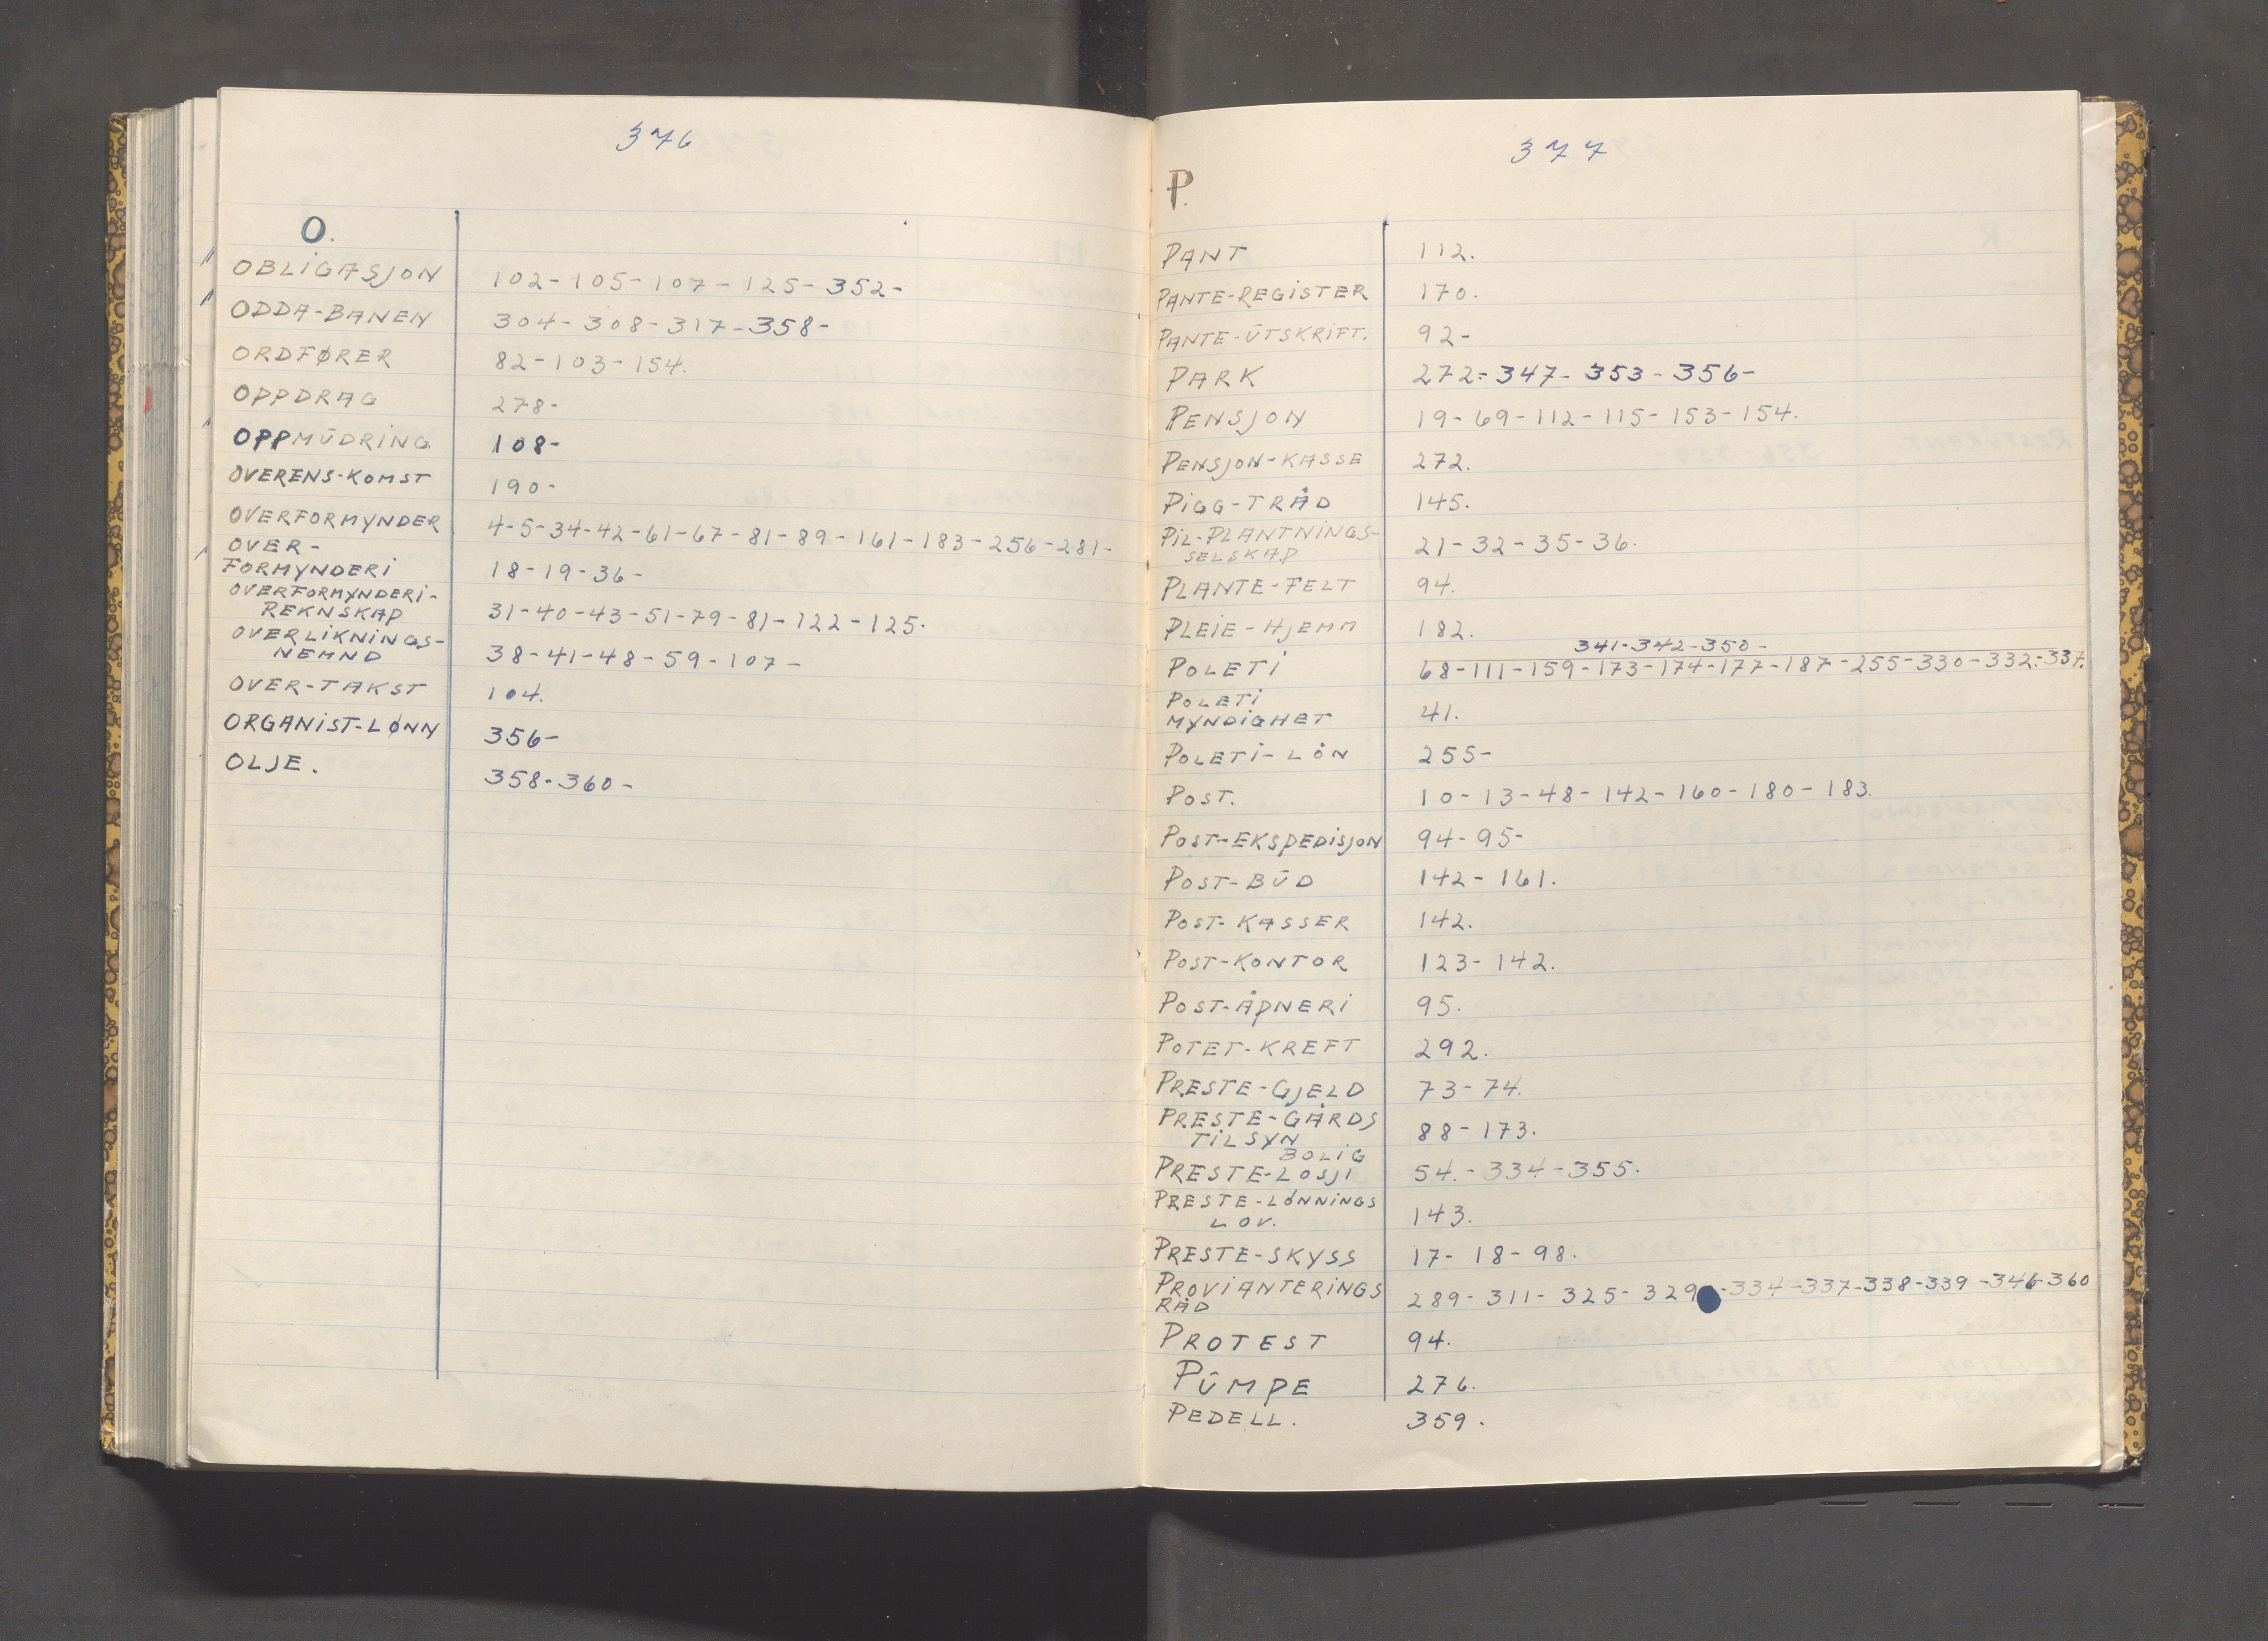 376
O.
OBLIGASJON 102-105-107-125-352-
ODDA-BANEN 304-308-317-358-
ORDFØRER 82-103-154.
OPPDRAG 278-
OPPMŪDRING 108-
OVERENS-KOMST 190-
OVERFORMYNDER 4-5-34-42-61-67-81-89-161-183-256-281-
OVER-
FORMYNDERI 18-19-36-
OVERFORMYNDERI-
REKNSKAP 31-40-43-51-79-81-122-125.
OVERLIKNINGS-
NEMND 38-41-48-59-107-
OVER-TAKST 104.
ORGANIST-LØNN 356-
OLJE. 358-360-
377
P.
PANT 112.
PANTE-REGISTER 170.
PANTE-ŪTSKRIFT. 92-
PARK 272-347-353-356-
PENSJON 19-69-112-115-153-154.
PENSJON-KASSE 272.
PIGG-TRÅD 145.
PIL-PLANTNINGS-
SELSKAP 21-32-35-36.
PLANTE-FELT 94.
PLEIE-HJEMM 182.
341-342-350-
POLETI 68-111-159-173-174-177-187-255-330-332-337.
POLETI
MYNDIGHET 41.
POLETI-LÖN 255-
POST. 10-13-48-142-160-180-183.
POST-EKSPEDISJON 94-95-
POST-BŪD 142-161.
POST-KASSER 142.
POST-KONTOR 123-142.
POST-ÅPNERI 95.
POTET-KREFT 292.
PRESTE-GJELD 73-74.
PRESTE-GÅRDS
TILSYN 88-173.
BOLIG
PRESTE-LOSJI 54.-334-355.
PRESTE-LØNNINGS
LOV. 143.
PRESTE-SKYSS 17-18-98.
PROVIANTERINGS
RÅD 289-311-325-329-334-337-338-339-346-360
PROTEST 94.
PŪMPE 276.
PEDELL. 359.